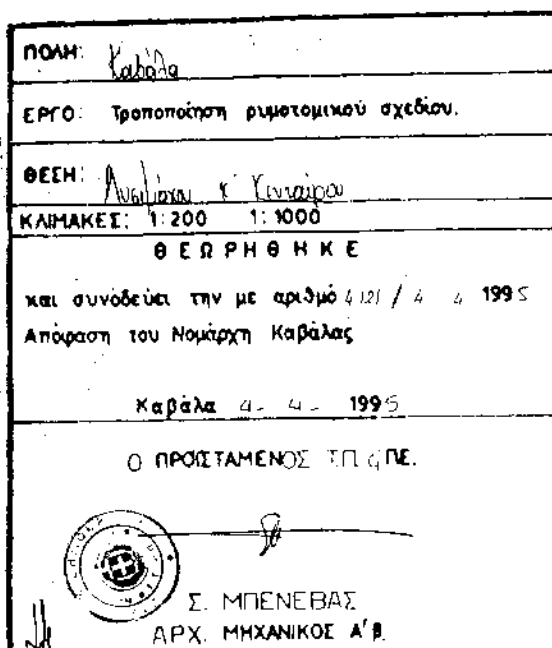 ΠΟΛΗ: Καβάλα
ΕΡΓΟ: Τροποποίηση ρυμοτομικού σχεδίου.
ΘΕΣΗ: Λυσιμάχου κ' Κενταύρου
ΚΛΙΜΑΚΕΣ: 1:200 1:1000
ΘΕΩΡΗΘΗΚΕ
και συνοδεύει την με αριθμό 4121 / 4 4 1995
Απόφαση του Νομάρχη Καβάλας
Καβάλα 4- 4- 1995
Ο ΠΡΟΪΣΤΑΜΕΝΟΣ Τ.Π. & Π.Ε.
Σ. ΜΠΕΝΕΒΑΣ
ΑΡΧ. ΜΗΧΑΝΙΚΟΣ Α'β